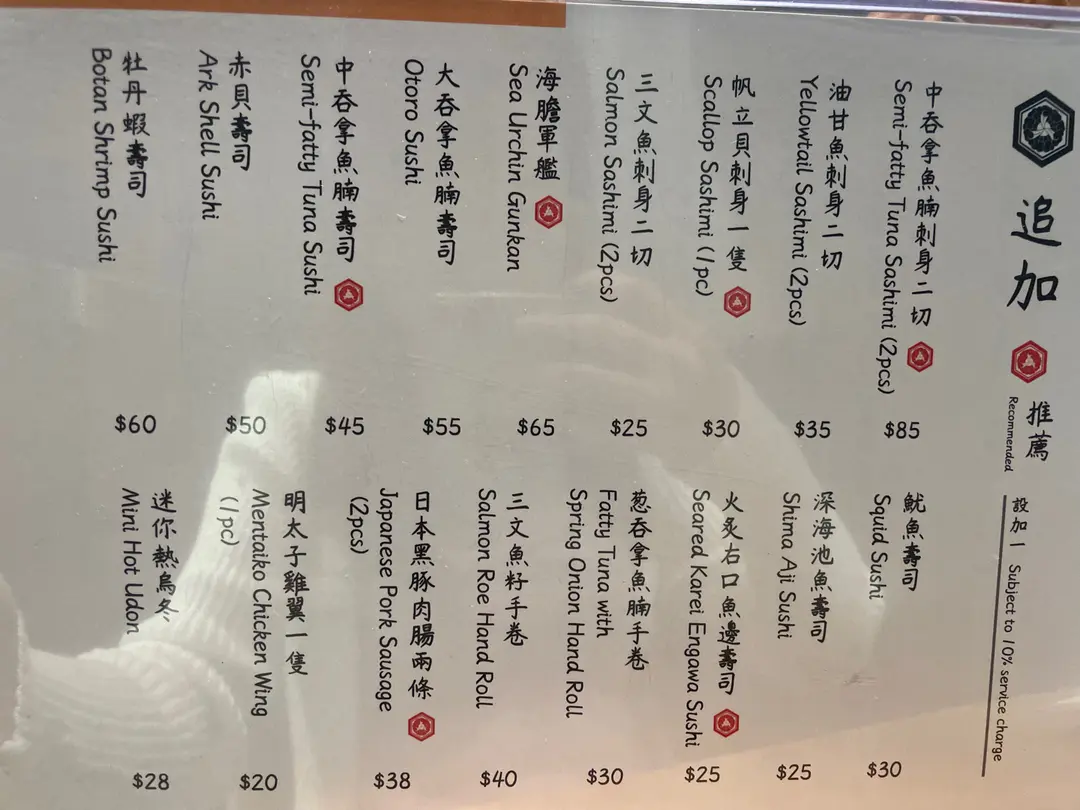 追加
推薦
Recommended
設加一 Subject to 10% service charge
中吞拿魚腩刺身二切
Semi-fatty Tuna Sashimi (2pcs) $85
油甘魚刺身二切
Yellowtail Sashimi (2pcs) $35
帆立貝刺身一隻
Scallop Sashimi (1pc) $30
三文魚刺身二切
Salmon Sashimi (2pcs) $25
海膽軍艦
Sea Urchin Gunkan $65
大吞拿魚腩壽司
Otoro Sushi $55
中吞拿魚腩壽司
Semi-fatty Tuna Sushi $45
赤貝壽司
Ark Shell Sushi $50
牡丹蝦壽司
Botan Shrimp Sushi $60
魷魚壽司
Squid Sushi $30
深海池魚壽司
Shima Aji Sushi $25
火炙右口魚邊壽司
Seared Karei Engawa Sushi $25
葱吞拿魚腩手卷
Fatty Tuna with
Spring Onion Hand Roll $30
三文魚籽手卷
Salmon Roe Hand Roll $40
日本黑豚肉腸兩條
Japanese Pork Sausage
(2pcs) $38
明太子雞翼一隻
Mentaiko Chicken Wing
(1pc) $20
迷你熱烏冬
Mini Hot Udon $28